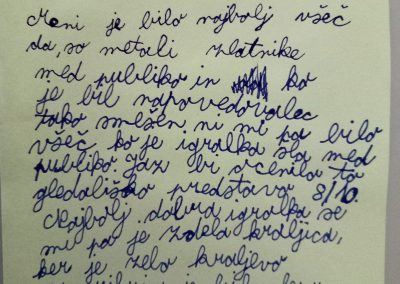 Meni je bilo najbolj všeč
da, so metali zlatnike
med publiko in ko
je bil napovedovalec
tako smešen, ni mi pa bilo
všeč ko je igralka šla med
publiko. Jaz bi ocenila to
gledališko predstavo 8/10.
Najbolj dobra igralka se
mi pa je zdela kraljica,
ker je zelo kraljevo